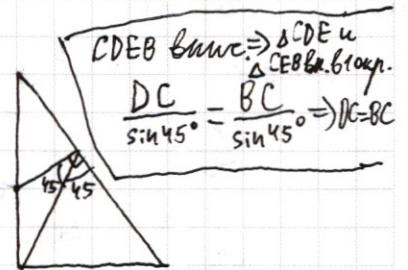 CDEB впис. ⇒ △CDE и
△CEB вп. в 1 окр.
DC / sin 45° = BC / sin 45° ⇒ DC = BC
45 45